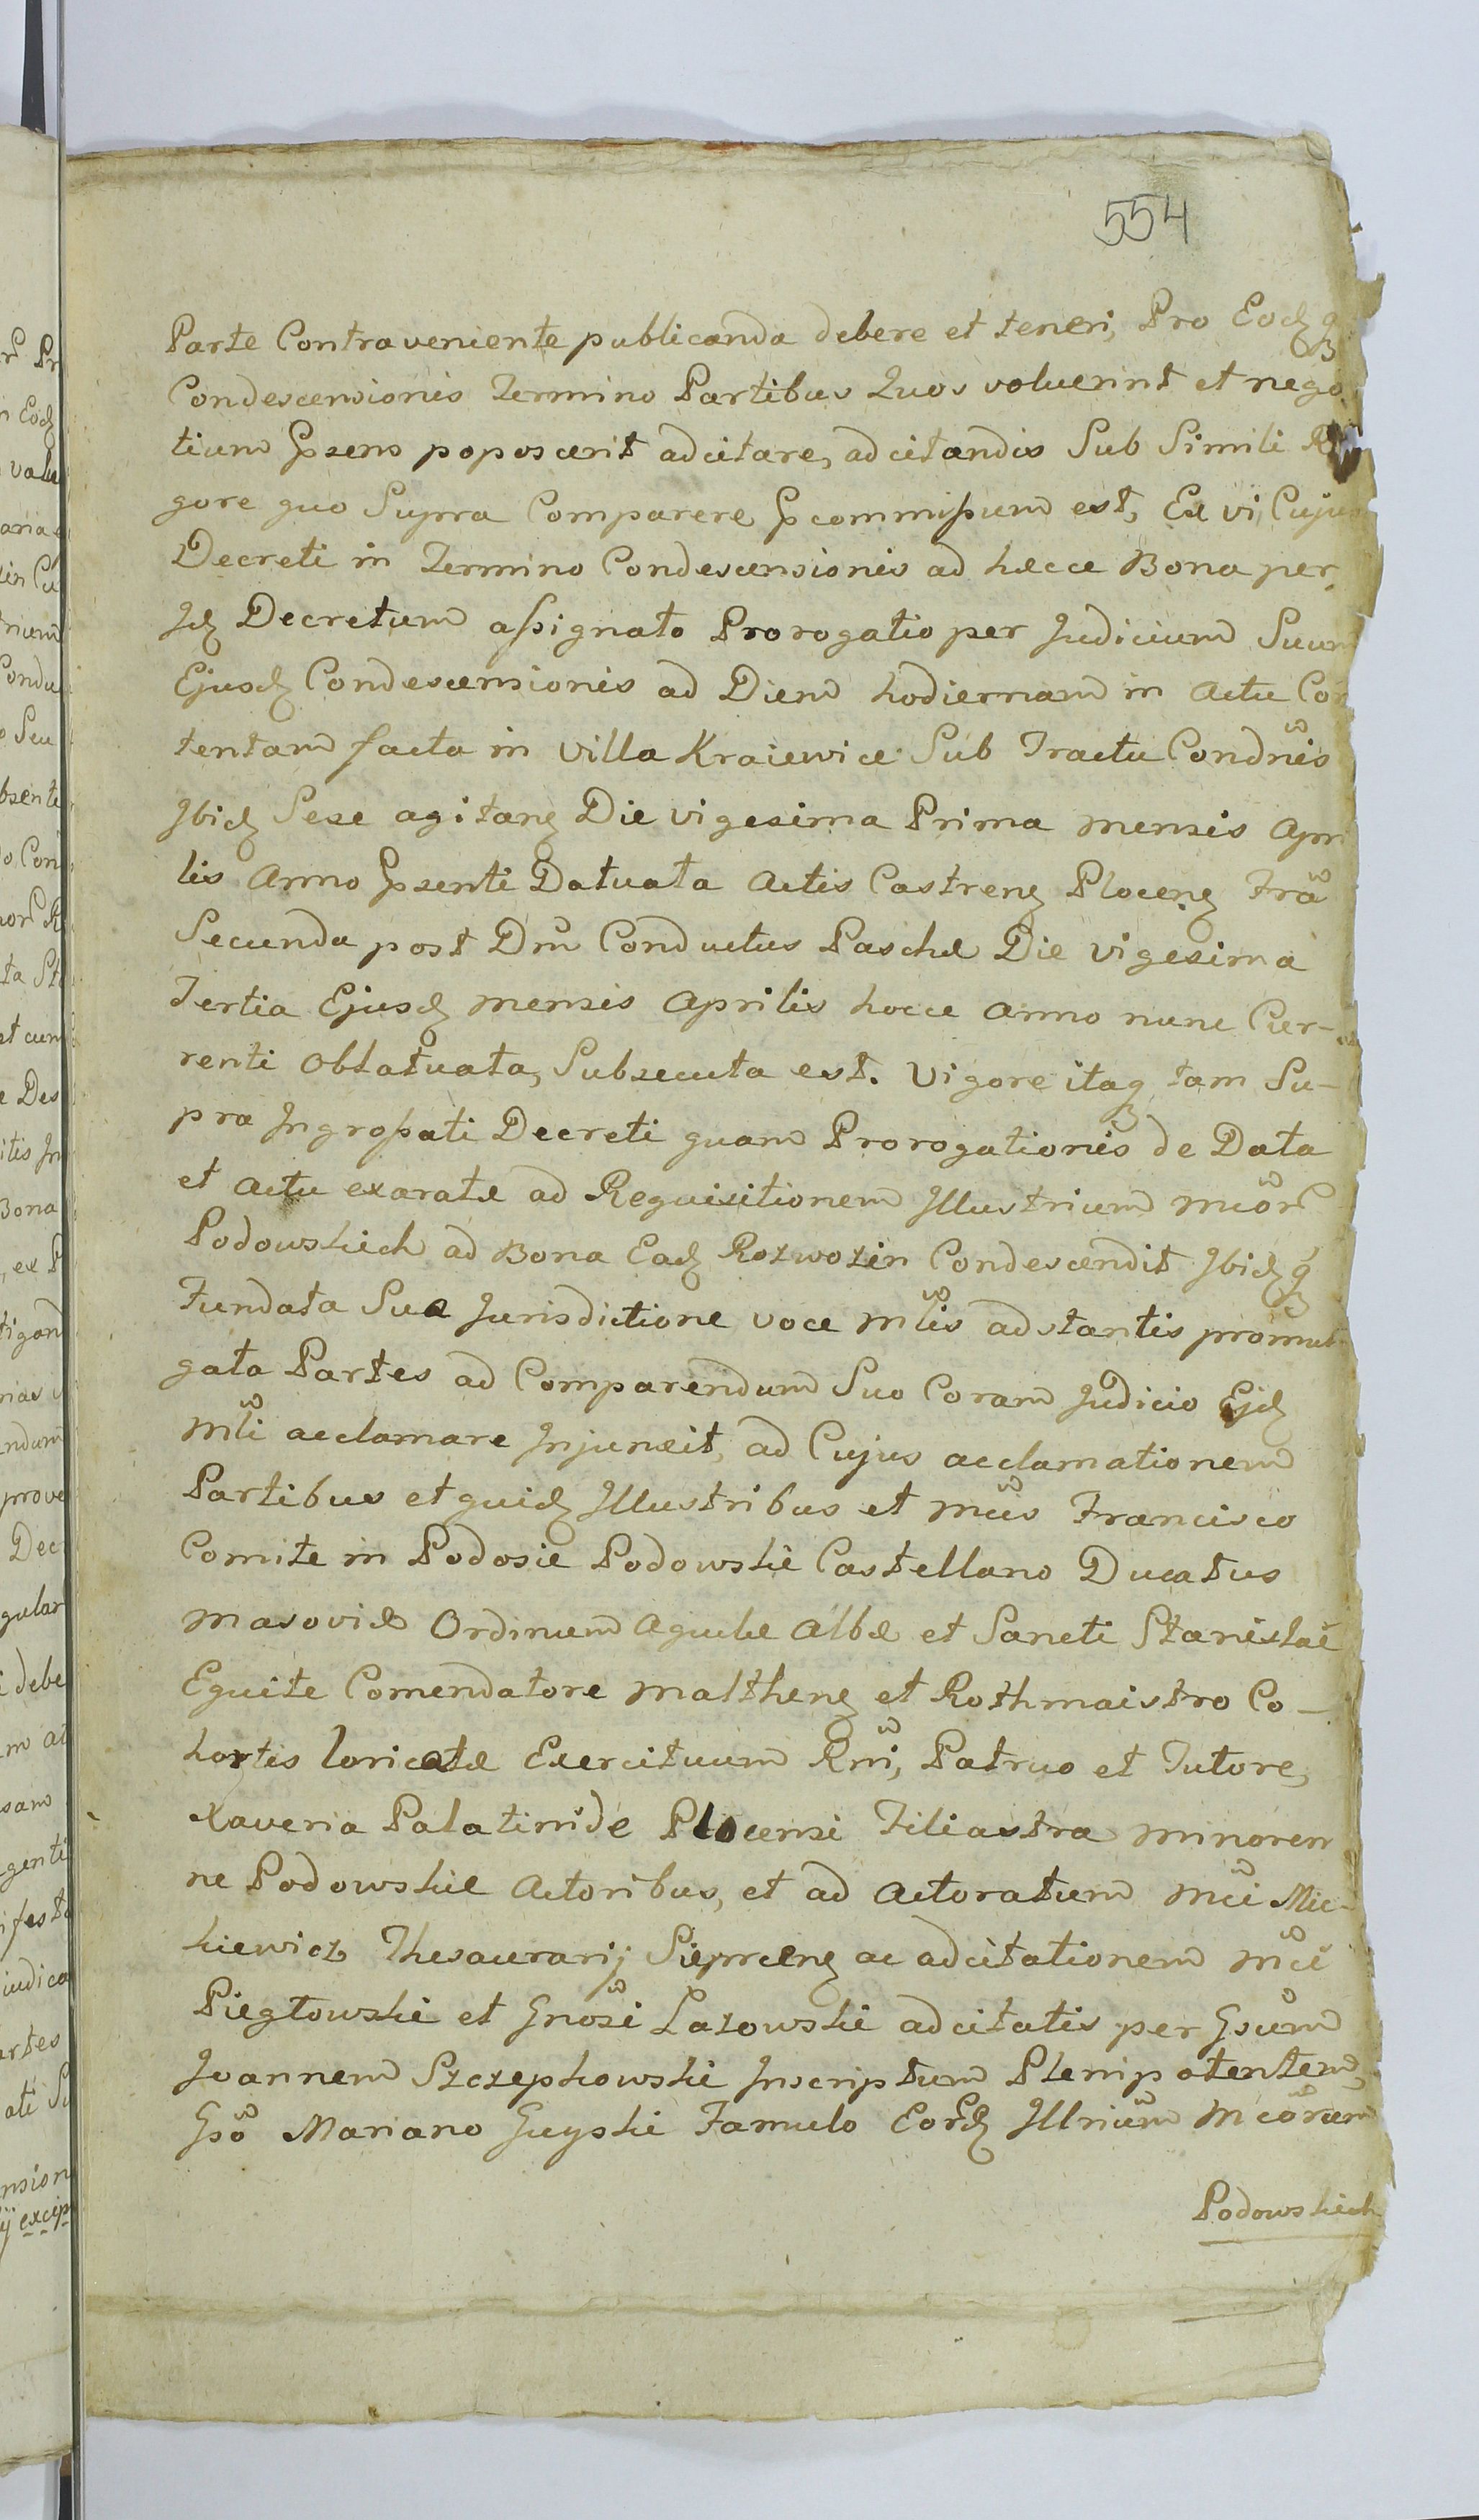 554
Parte Contraveniente publicanda debere et teneri, Pro Eodq
Condescensionis Termino Partibus Quos voluerint et nego
tium pnsens poposcerit adcitare, adcitandis Sub Simili Ri
gore quo Supra Comparere pcommissum est, Ex vi, Cujus
Decreti in Termino Condescensionis ad hæcce Bona per
Id Decretum assignato Prorogatio per Judicium Suum
Ejusd Condescensionis ad Diem hodiernam in Actu Con
tentam facta in Villa Kraiewice Sub Tractu Condnis
Ibid Sese agitan Die vigesima Prima mensis Apri
lis Anno pnsenti Datuata Actis Castren Plocen Fra
Secunda post Dm Conductus Paschæ Die vigesima
Tertia Ejusd mensis Aprilis hocce Anno nunc Cur-
renti Oblatuata, Subsecuta est. Vigore itaq tam Su-
pra Ingrossati Decreti quam Prorogationis de Data
et Actu exaratæ ad Requisitionem Illustrium Mcor
Podowskich ad Bona Ead Rozwozin Condescendit Ibidq
Fundata Sua Jurisdictione voce Mlis adstantis promul
gata Partes ad Comparendum Suo Coram Judicio Ejd
Mli acclamare Injunxit, ad Cujus acclamationem
Partibus et quid Illustribus et Mcis Francisco
Comite in Podosie Podowski Castellano Ducatus
Masoviæ Ordinum Aquilæ Albæ et Sancti Stanislai
Equite Comendatore Malthen et Rothmaistro Co-
hortis loricatæ Exercituum Rni, Patruo et Tutore,
Xaveria Palatinide Plocensi Filiastra minoren
ne Podowskie Actoribus, et ad Actoratum Mci Mic-
kiewicz Thesaurarij Sieprcen ac adcitationem Mci
Piegłowski et Gnosi Łazowski adcitatis per Gsum
Joannem Szczepkowski Inscriptum Plenipotentem,
Gso Mariano Guyski Famulo Eord Illrium Mcorum
Podowskich